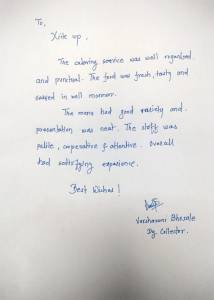 To,
Xite up,
The catering service was well organized
and punctual. The food was fresh, tasty and
served in well manner.
The menu had good variety and
presentation was neat. The staff was
polite, cooperative & attentive. Overall
had satisfying experience.
Best Wishes!
Varsharani Bhosale
Dy. Collector.